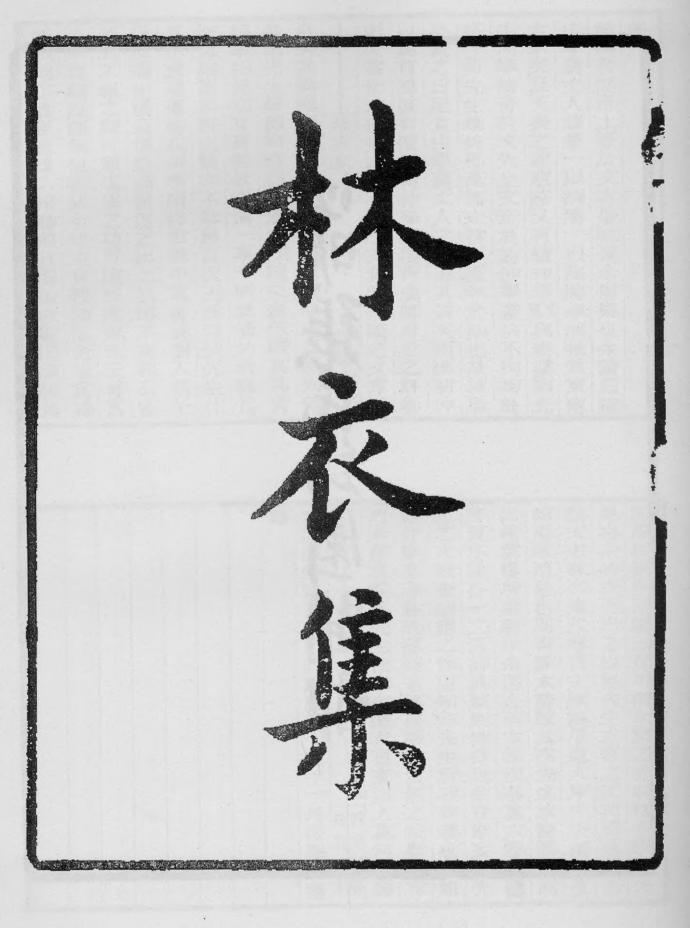 林衣集